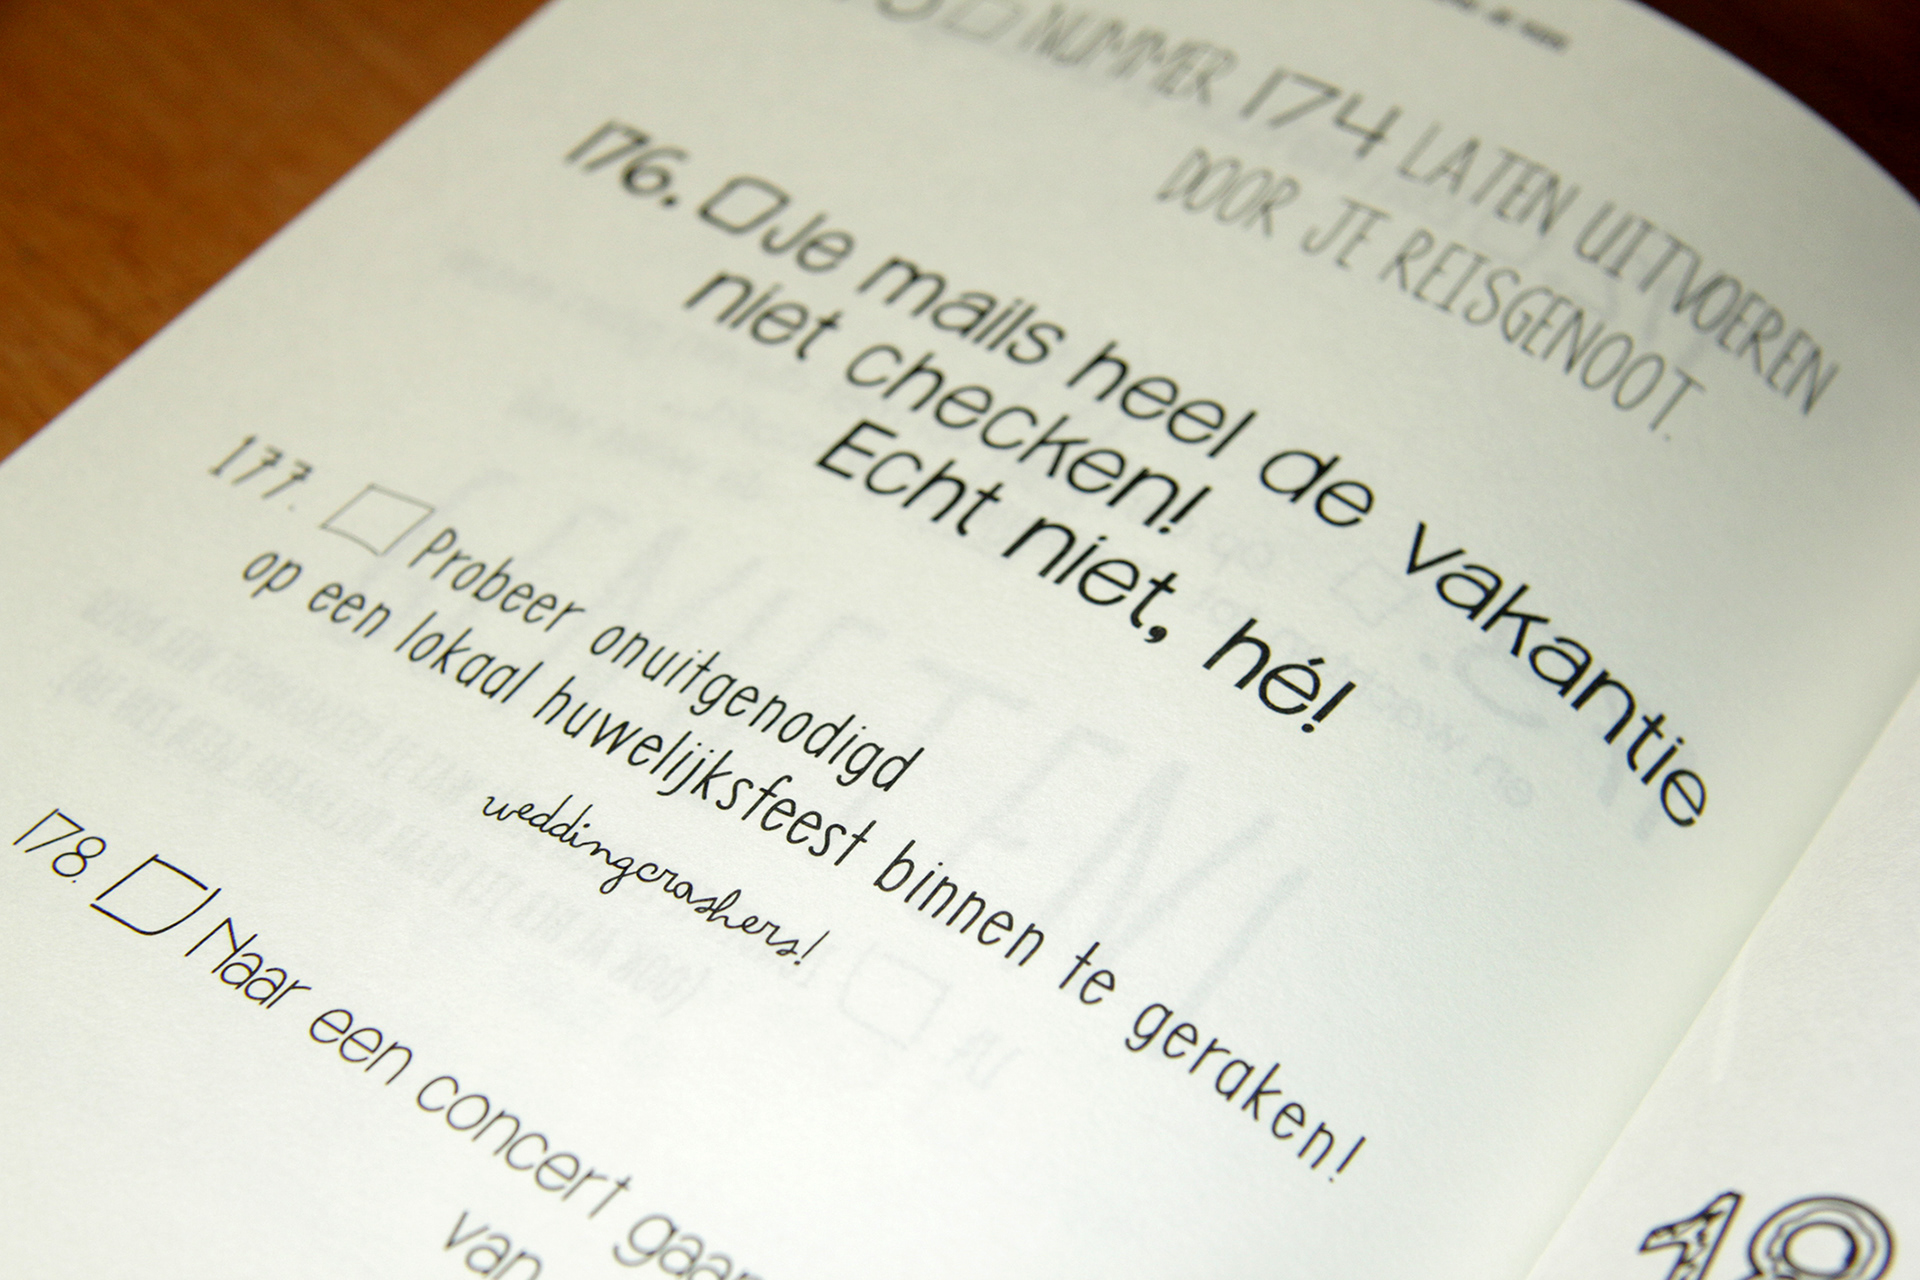 NUMMER 174 LATEN UITVOEREN
DOOR JE REISGENOOT.
176. Je mails heel de vakantie
niet checken!
Echt niet, hé!
177. Probeer onuitgenodigd
op een lokaal huwelijksfeest binnen te geraken!
weddingcrashers!
178. Naar een concert gaan
van